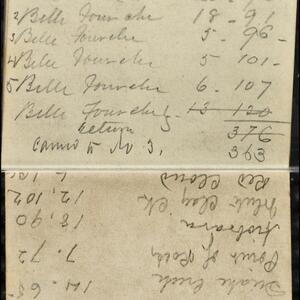 2 Belle Fourche 18 - 91
3 Belle Fourche 5 - 96 -
4 Belle Fourche 5 101 -
5 Belle Fourche 6 - 107
Belle Fourche 13 120
return 376
No. 3. 363
Snake Creek 14 - 65
Point of Rocks 7. 72
Niobrara 18, 90
White Clay Ck. 12, 102
Red Cloud